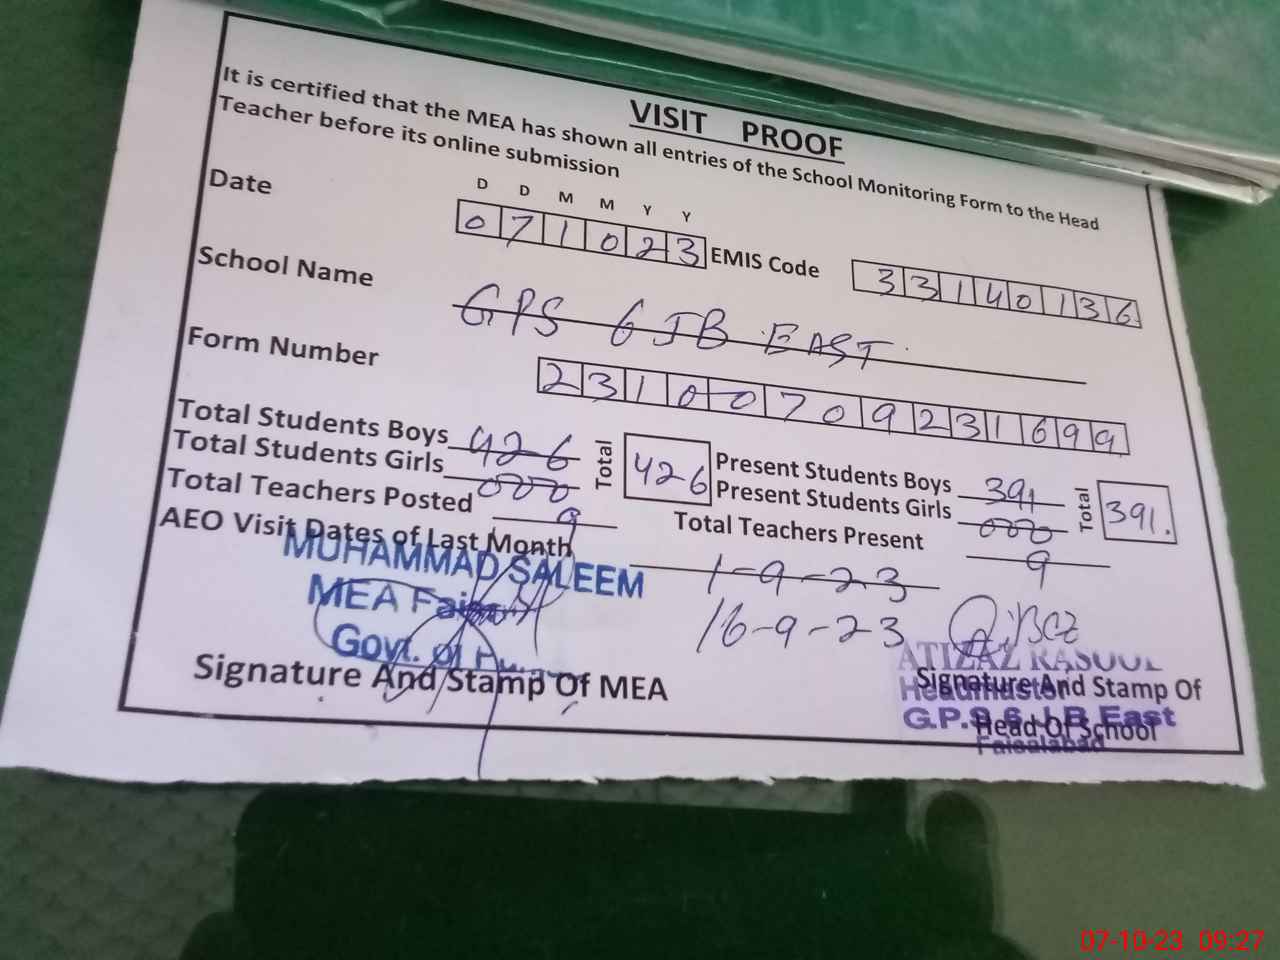 VISIT PROOF
It is certified that the MEA has shown all entries of the School Monitoring Form to the Head
Teacher before its online submission
D D M M Y Y
Date 071023 EMIS Code 33140136
School Name GPS 6 JB EAST
Form Number 23100709231699
Total Students Boys 426 Total 426 Present Students Boys 391 Total 391.
Total Students Girls 000 Present Students Girls 000
Total Teachers Posted 9 Total Teachers Present 9
AEO Visit Dates of Last Month 1-9-23
16-9-23
MUHAMMAD SALEEM
MEA
Govt. of
Signature And Stamp Of MEA
ATIZAZ RASOOL
Headmaster
G.P.S 6 J.B East
Faisalabad
Signature And Stamp Of
Head Of School
07-10-23 09:27